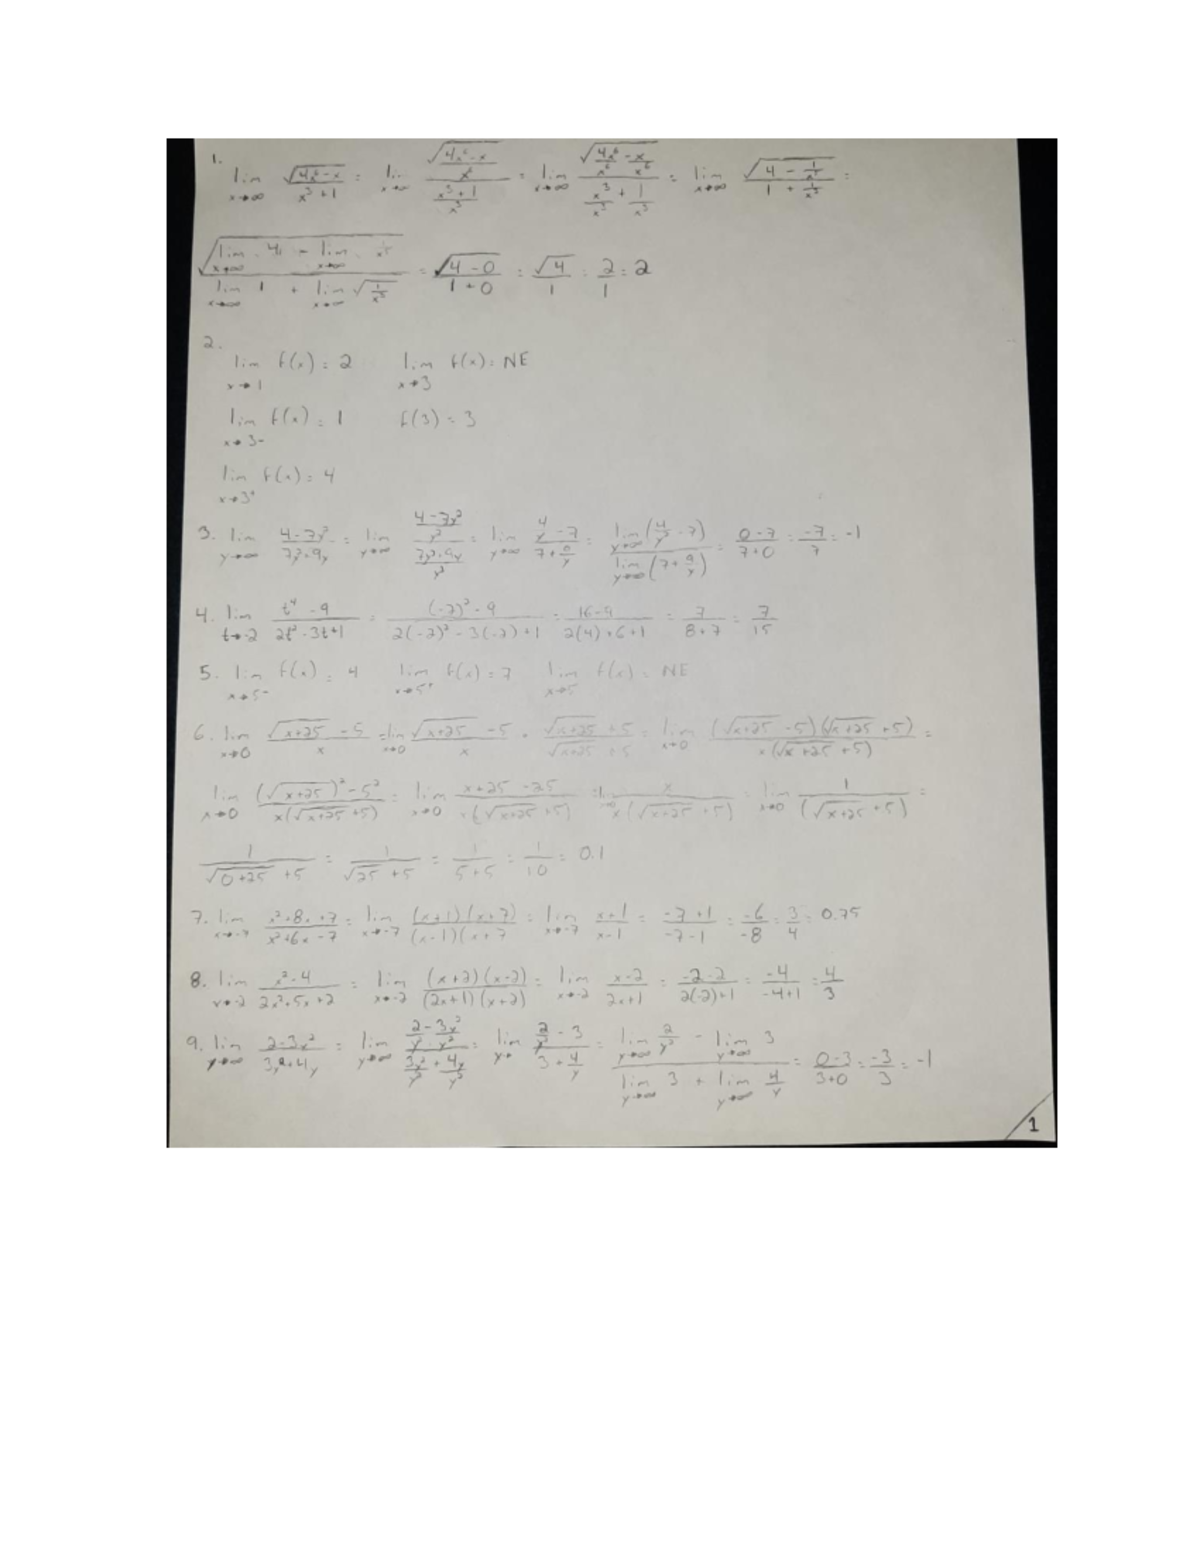 1.
lim x→∞ √(4x⁶-x) / (x³+1) = lim x→∞ √((4x⁶-x)/x⁶) / ((x³+1)/x³) = lim x→∞ √(4x⁶/x⁶ - x/x⁶) / (x³/x³ + 1/x³) = lim x→∞ √(4 - 1/x⁵) / (1 + 1/x³) =
√(lim x→∞ 4 - lim x→∞ 1/x⁵) / (lim x→∞ 1 + lim x→∞ √(1/x³)) = √(4-0) / (1+0) = √4 / 1 = 2/1 = 2
2.
lim x→1 f(x) = 2 lim x→3 f(x) = NE
lim x→3- f(x) = 1 f(3) = 3
lim x→3+ f(x) = 4
3. lim y→∞ (4-7y²)/(7y²+9y) = lim y→∞ ((4-7y²)/y²) / ((7y²+9y)/y²) = lim y→∞ (4/y² - 7)/(7 + 9/y) = lim y→∞ (4/y² - 7) / lim y→∞ (7 + 9/y) = (0-7)/(7+0) = -7/7 = -1
4. lim t→-2 (t⁴-9)/(2t²-3t+1) = ((-2)²-9)/(2(-2)²-3(-2)+1) = (16-9)/(2(4)+6+1) = 7/(8+7) = 7/15
5. lim x→5- f(x) = 4 lim x→5+ f(x) = 7 lim x→5 f(x) = NE
6. lim x→0 (√(x+25) - 5)/x = lim x→0 (√(x+25) - 5)/x · (√(x+25) + 5)/(√(x+25) + 5) = lim x→0 (√(x+25) - 5)(√(x+25) + 5) / x(√(x+25) + 5) =
lim x→0 ((√(x+25))² - 5²) / x(√(x+25) + 5) = lim x→0 (x+25-25) / x(√(x+25) + 5) = lim x→0 x / x(√(x+25) + 5) = lim x→0 1 / (√(x+25) + 5) =
1/(√(0+25) + 5) = 1/(√25 + 5) = 1/(5+5) = 1/10 = 0.1
7. lim x→-7 (x²+8x+7)/(x²+6x-7) = lim x→-7 (x+1)(x+7) / (x-1)(x+7 = lim x→-7 (x+1)/(x-1) = (-7+1)/(-7-1) = -6/-8 = 3/4 = 0.75
8. lim x→-2 (x²-4)/(2x²+5x+2) = lim x→-2 (x+2)(x-2) / (2x+1)(x+2) = lim x→-2 (x-2)/(2x+1) = (-2-2)/(2(-2)+1) = -4/(-4+1) = 4/3
9. lim y→∞ (2-3y²)/(3y²+4y) = lim y→∞ (2/y² - 3y²/y²) / (3y²/y² + 4y/y²) = lim y→ (2/y² - 3)/(3 + 4/y) = (lim y→∞ 2/y² - lim y→∞ 3) / (lim y→∞ 3 + lim y→∞ 4/y) = (0-3)/(3+0) = -3/3 = -1
1